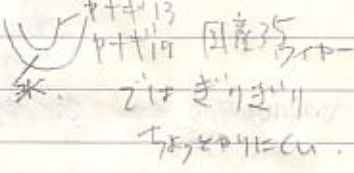 ヤナギ13
ヤナギ17 国産35
ワイヤー
氷.
ではぎりぎり
ちょっとやりにくい.